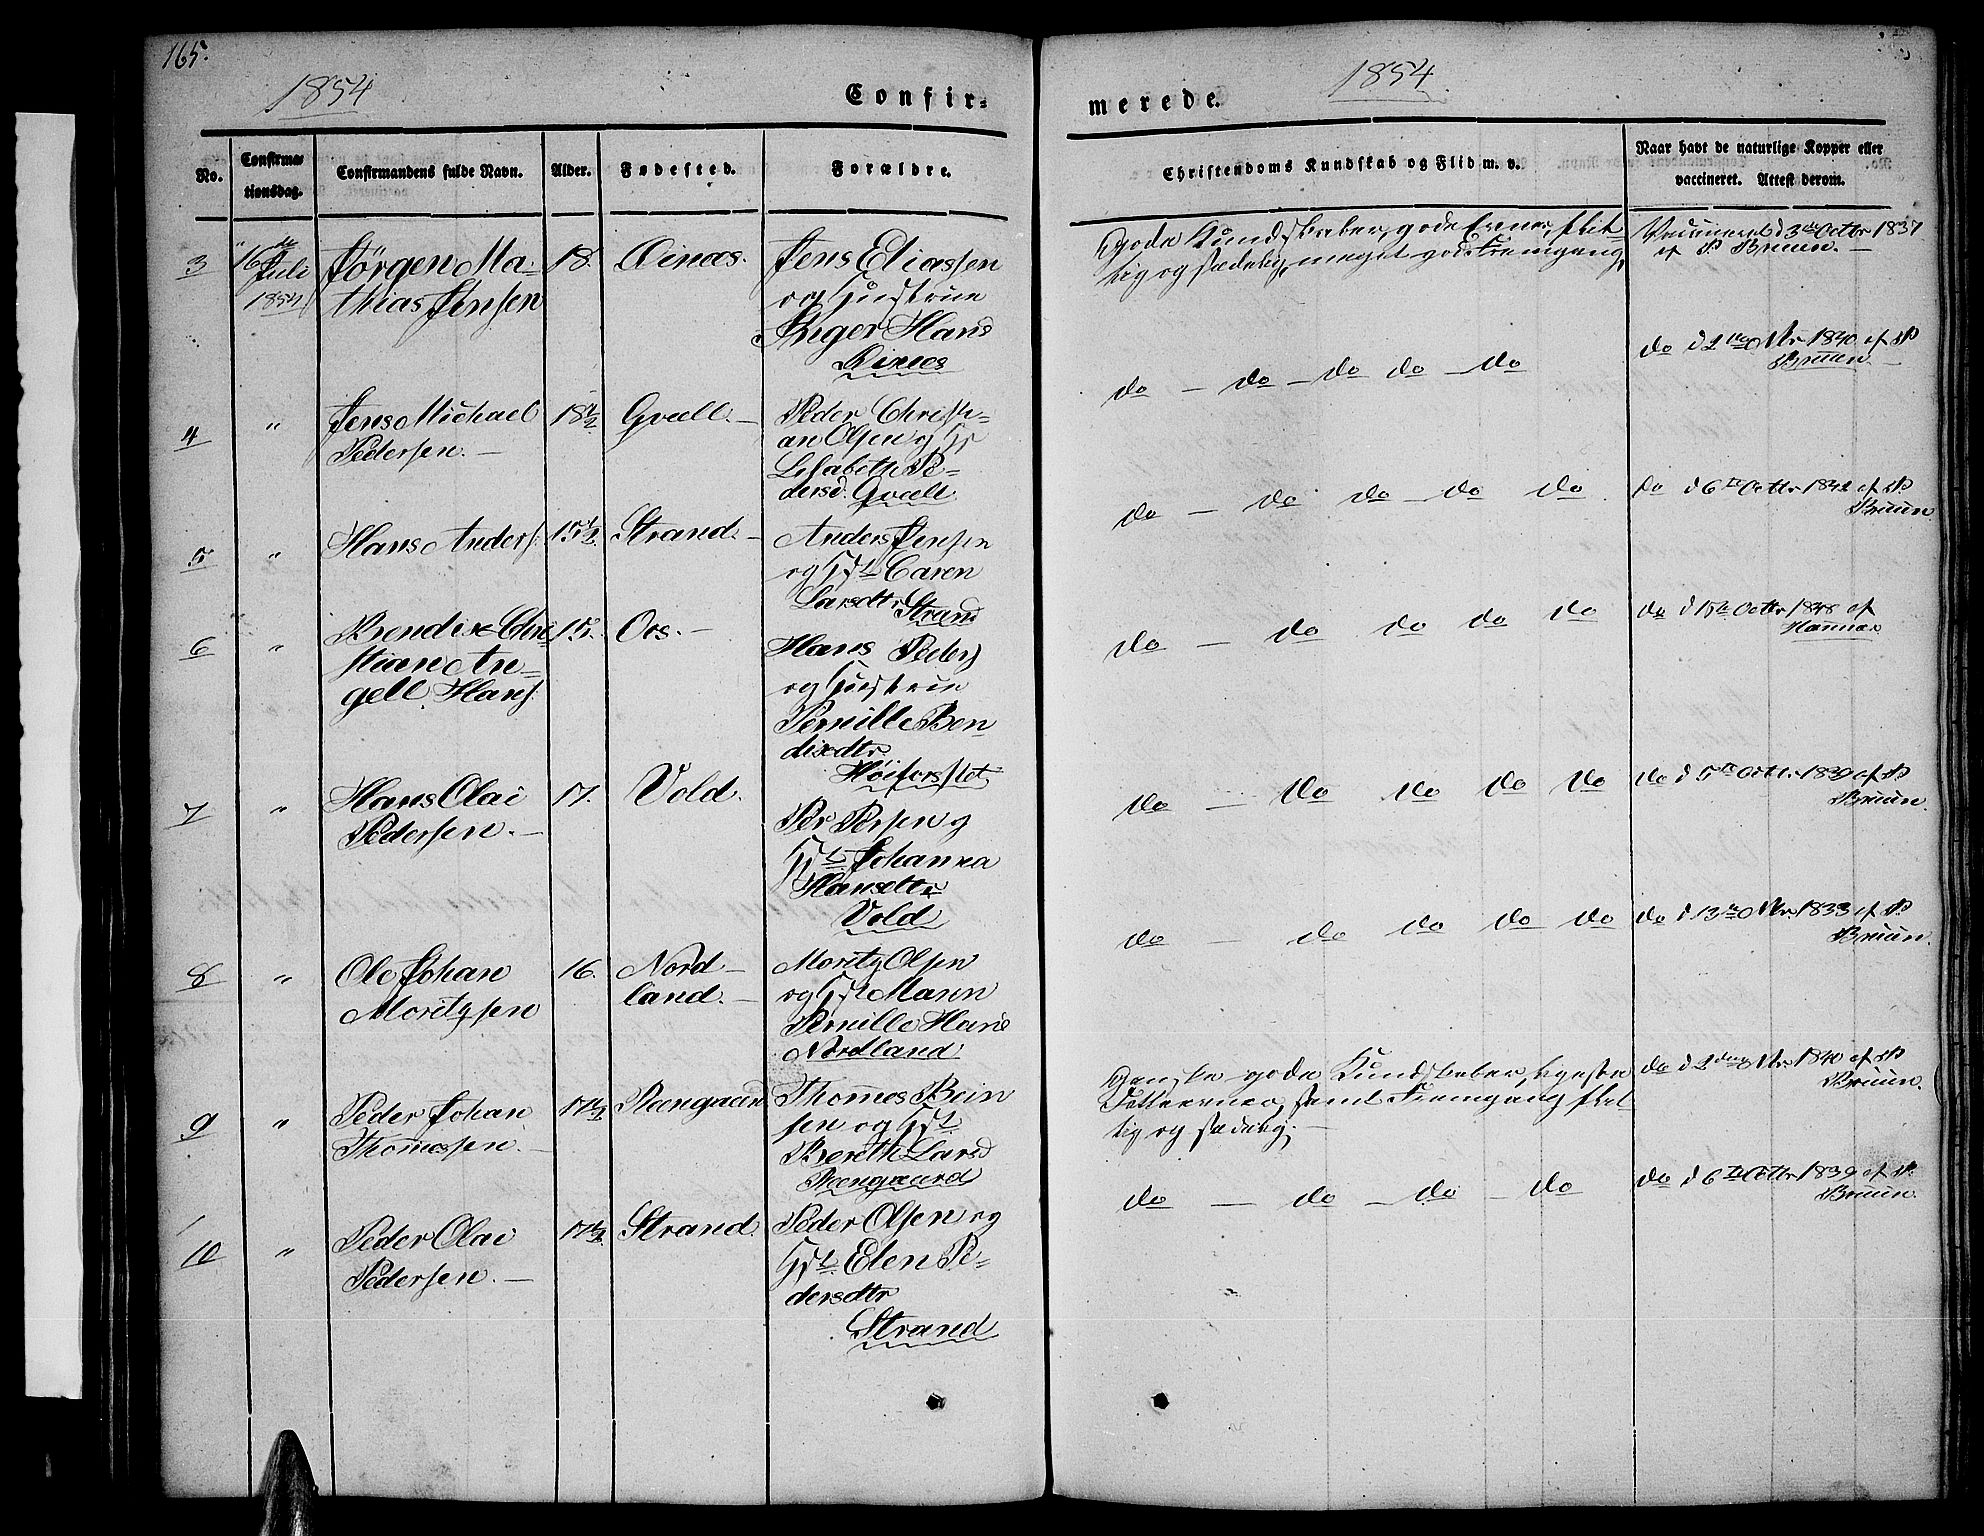 165.
1854
Confir-
merede.
1854
No.
Confirma-
tionsdag.
Confirmandens fulde Navn.
Alder.
Fødested.
Forældre.
Christendoms Kundskab og Flid m. v.
Naar havt de naturlige Kopper eller
vaccineret. Attest derom.
3
16de
Juli
1854
Jørgen Ma-
thias Jensen
18.
Jens Eliassen
og Hustrue
Inger Hansd
gode Kundskaber, gode Evner, flit-
tig og sædelig, meget god Fremgang,
Vaccineret d 3die Octbr 1837
af P Bruun.
4
"
Jens Michael
Pedersen.
18 1/2
Gvæll.
Peder Christi-
an Olsen og H
Lisabeth Pe-
dersd. Gvæll
do — do — do do — do
do d 2den Oktr 1840 af P
Bruun.
5
"
Hans Anders.
15 1/2
Strand.
Anders Jensen
og Hst Caren
Larsdtr Strand
do — do do — do do
do d 6te Octbr 1842 af P.
Bruun
6
"
Brendix Chri
stian An-
gell Hans.
15.
Os.
Hans Peders
og Hustrue
Pernille Ben
dixdtr
do — do do do do
do d 15de Octbr 1848 af
7
"
Hans Olai
Pedersen.
17.
Vold.
Per Persen og
Hst Johanna
Hansdtr
Vold
do — do do do do
do d 5te Octbr 1839 af P
Bruun.
8
"
Ole Johan
Moritzsen
16.
Nord-
land.
Moritz Olsen
og Hst Maren
Pernille Hans
Nordland
do — do do do do
do d 13de Oktr 1833 af P.
Bruun.
9
"
Peder Johan
Thomessen.
17 1/2
Steengaard
Thomes Bein
sen og Hst
Bereth Larsd
Steengaard
Ganske gode Kundskaber,
samt Fremgang flit-
tig og sædelig.
do d 2den Oktr 1840 af P
Bruun.
10
"
Peder Olai
Pedersen.
17 1/2
Strand.
Peder Olsen og
Hst Elen Pe-
dersdtr
Strand
do — do — do — do
do d 6te Octbr 1839 af P.
Bruun.